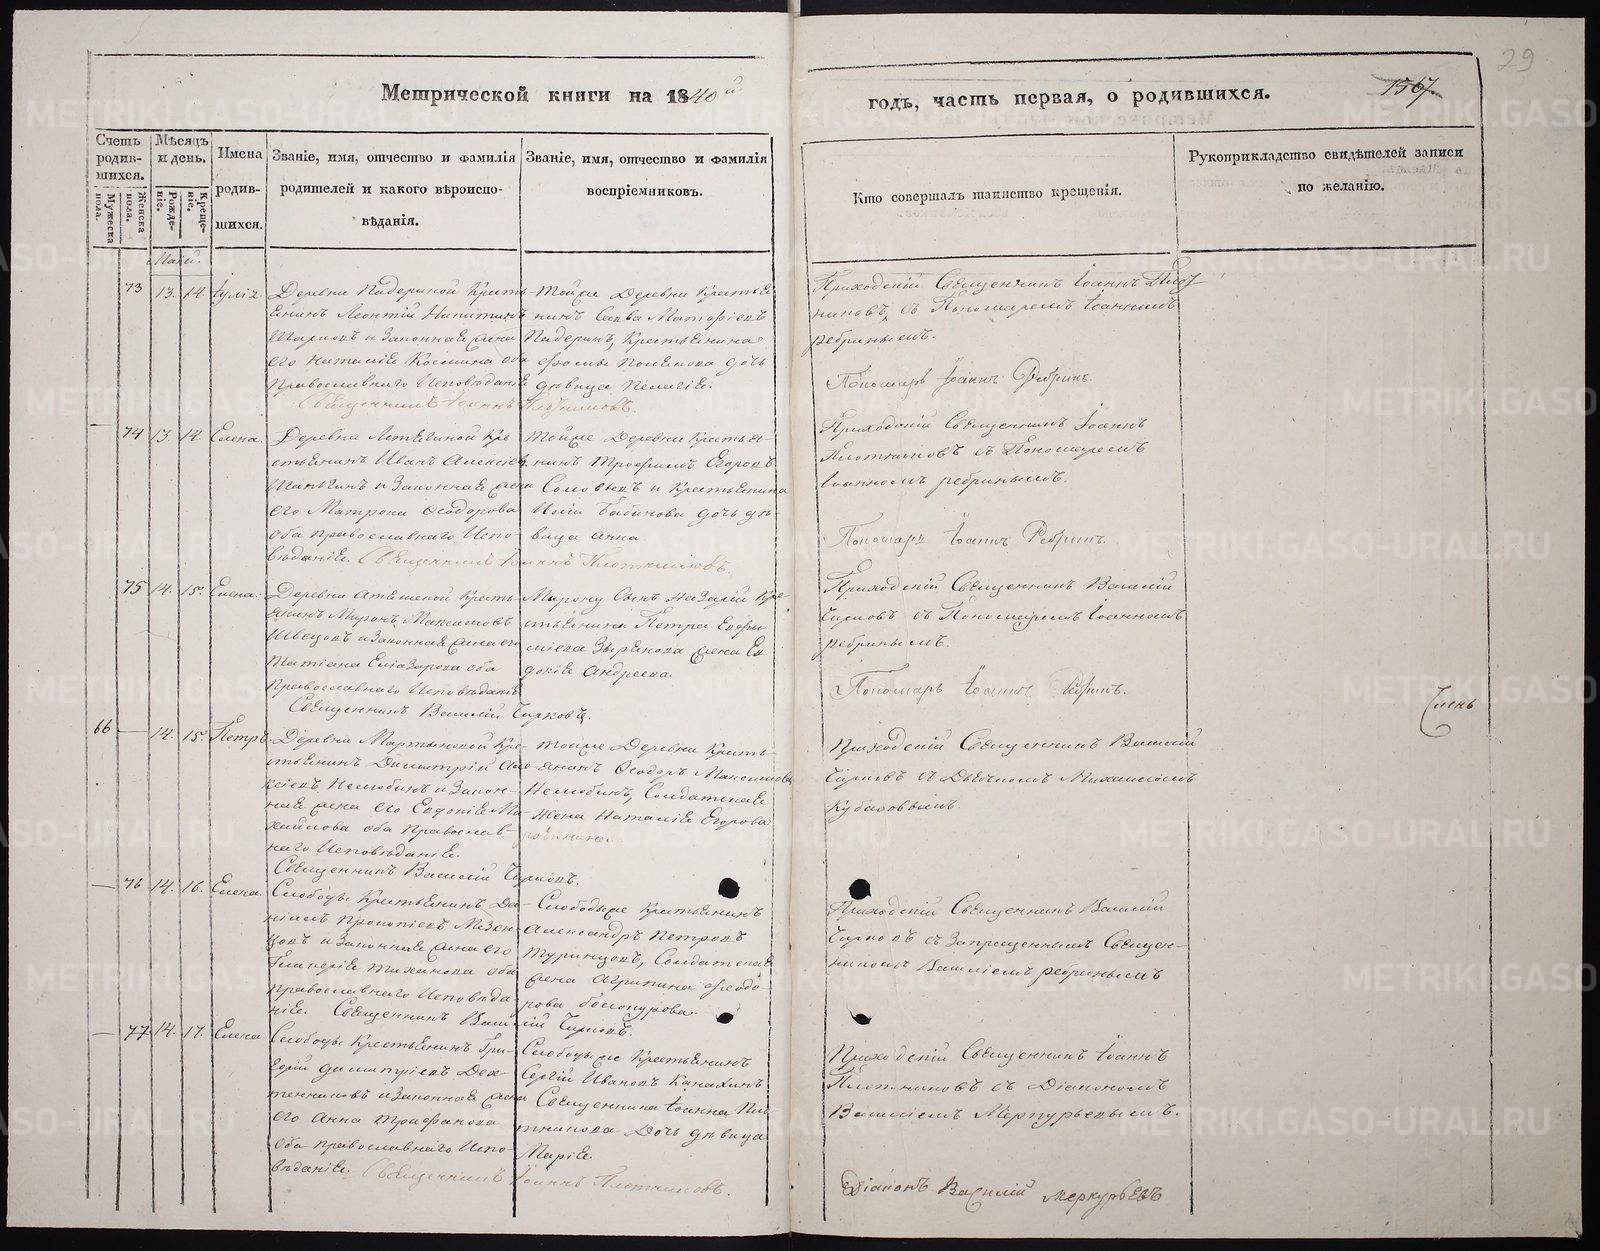 29
Метрической книги на 1840й
годъ, часть первая, о родившихся.
1567
Счетъ родив-шихся.
Мужеска пола.
Женска пола.
Мѣсяцъ и день.
Рожде-ніе.
Креще-ніе.
Имена родив-шихся.
Званіе, имя, отчество и фамилія родителей и какого вѣроиспо-вѣданія.
Званіе, имя, отчество и фамилія воспріемниковъ.
Кто совершалъ таинство крещенія.
Рукоприкладство свидѣтелей записи по желанію.
Маій.
73 13. 14. Іуліа
Деревни Падериной Кресть-
Енинъ Леонтій Никитинъ
и Законная жена
его Наталіе Космина оба
Православнаго Исповѣданіе
Священникъ Іоаннъ Плотниковъ.
Тойже Деревни Крестье
нинъ Савва Матофіевъ
Падеринъ, Крестьенина
дочь
дѣвица Пелагіе.
Приходскій Священникъ Іоаннъ Плот-
никовъ, съ Пономаремъ Іоанномъ
ребринымъ.
Пономарь Іоаннъ Ребринъ.
74 13. 14. Елена.
Деревни Кре
стьенинъ Иванъ Алексіевъ
и Законная жена
его Матрона Ѳеодорова
оба православнаго Испо-
вѣданіе. Священникъ Іоаннъ Плотниковъ.
Тойже Деревни Крестье-
нинъ Трофимъ Егоровъ
Соловьевъ и Крестьенина
Бабинова дочь дѣ-
вица Анна
Приходскій Священникъ Іоаннъ
Плотниковъ съ Пономаремъ
Іоанномъ ребринымъ.
Пономарь Іоаннъ Ребринъ.
75 14. 15. Елена.
Деревни Кресть-
енинъ Миронъ Максимовъ
Швецовъ и Законная жена его
Татіана Еліазарова оба
Православнаго Исповѣданіе
Священникъ Василій Чирковъ.
Мирону Сынъ Назарій Кре-
стьенина Петра Ефи
міева Зырянова жена Ев
докіе Андреева.
Приходскій Священникъ Василій
Чирковъ съ Пономаремъ Іоанномъ
ребринымъ.
Пономарь Іоаннъ Ребринъ.
66 — 14. 15. Петръ.
Деревни Мартыновой Кре-
стьенинъ Димитрій Але-
ксіевъ Нелюбинъ и Закон-
ная жена его Евдокіе Ми
хайлова оба православ-
наго Исповѣданіе.
Священникъ Василій Чирковъ.
Тойже Деревни Кресть-
енинъ Ѳеодоръ Максимовъ
Нелюбинъ, Солдатская
Жена Наталіе Егорова
Приходскій Священникъ Василій
Чирковъ съ Дьячкомъ Михаиломъ
Кубасовымъ.
— 76 14. 16. Елена.
Слободы Крестьенинъ Да-
ніилъ Прокопіевъ Мезен-
цовъ и Законная жена его
Гликеріе Тиханова оба
православнаго Исповѣда-
ніе. Священникъ Василій Чирковъ.
Слободыже Крестьенинъ
Александръ Петровъ
Туринцовъ, Солдатская
жена Агрипина Ѳеодо-
рова
Приходскій Священникъ Василій
Чирковъ съ Запрещеннымъ Священ-
никомъ Василіемъ ребринымъ
— 77 14. 17. Елена
Слободы Крестьенинъ Гри-
горій Димитріевъ Дех-
тенниковъ и Законная жена
его Анна Трифанова
оба православнаго Испо-
вѣданіе. Священникъ Іоаннъ Плотниковъ.
Слободыже Крестьенинъ
Сергій Ивановъ Канахинъ
Священника Іоанна Пло
тникова Дочь дѣвица
Маріе.
Приходскій Священникъ Іоаннъ
Плотниковъ съ Діакономъ
Василіемъ Меркурьевымъ.
Діаконъ Василій Меркурьевъ
Членъ
METRIKI.GASO-URAL.RU